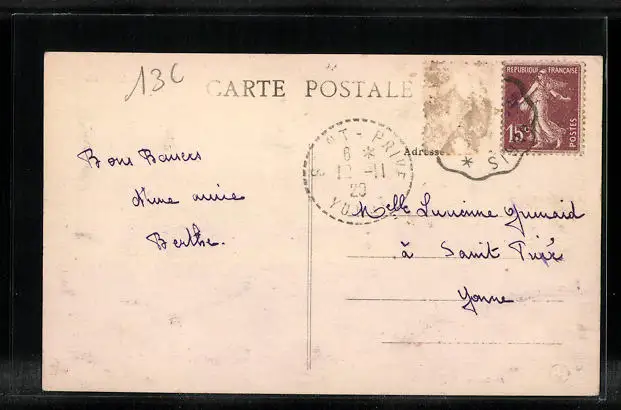 13C
CARTE POSTALE
REPUBLIQUE FRANÇAISE
15c
POSTES
Adresse
ST-PRIVÉ
6 *
11
YONNE
Bons Baisers
d'une amie
Berthe.
Melle Lucienne Grimaid
à Saint Privé
Yonne